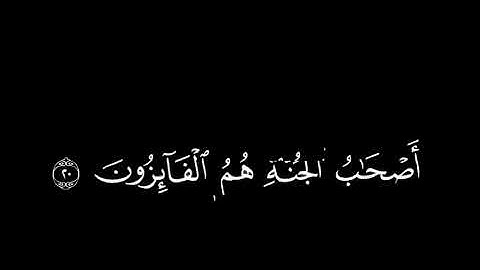 أَصْحَٰبُ ٱلْجَنَّةِ هُمُ ٱلْفَآئِزُونَ ٢٠